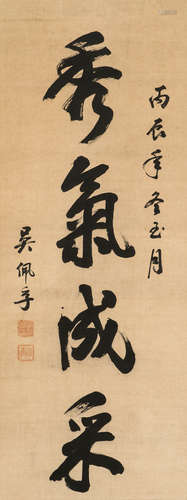 丙辰年冬玉月
秀氣成采
吳佩孚